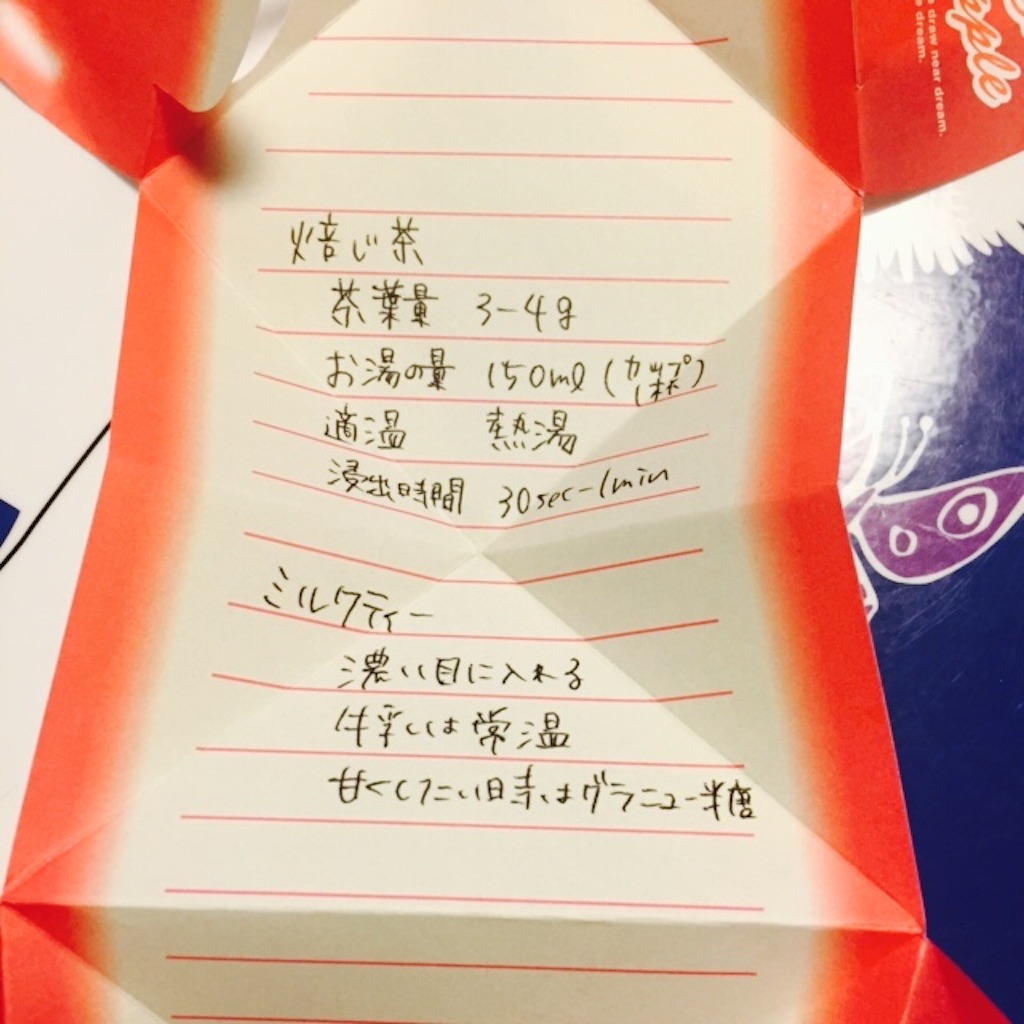 pple
draw near dream.
dream.
焙じ茶
茶葉量 3-4g
お湯の量 150ml (カップ1杯)
適温 熱湯
浸出時間 30sec-1min
ミルクティー
濃い目に入れる
牛乳は常温
甘くしたい時はグラニュー糖